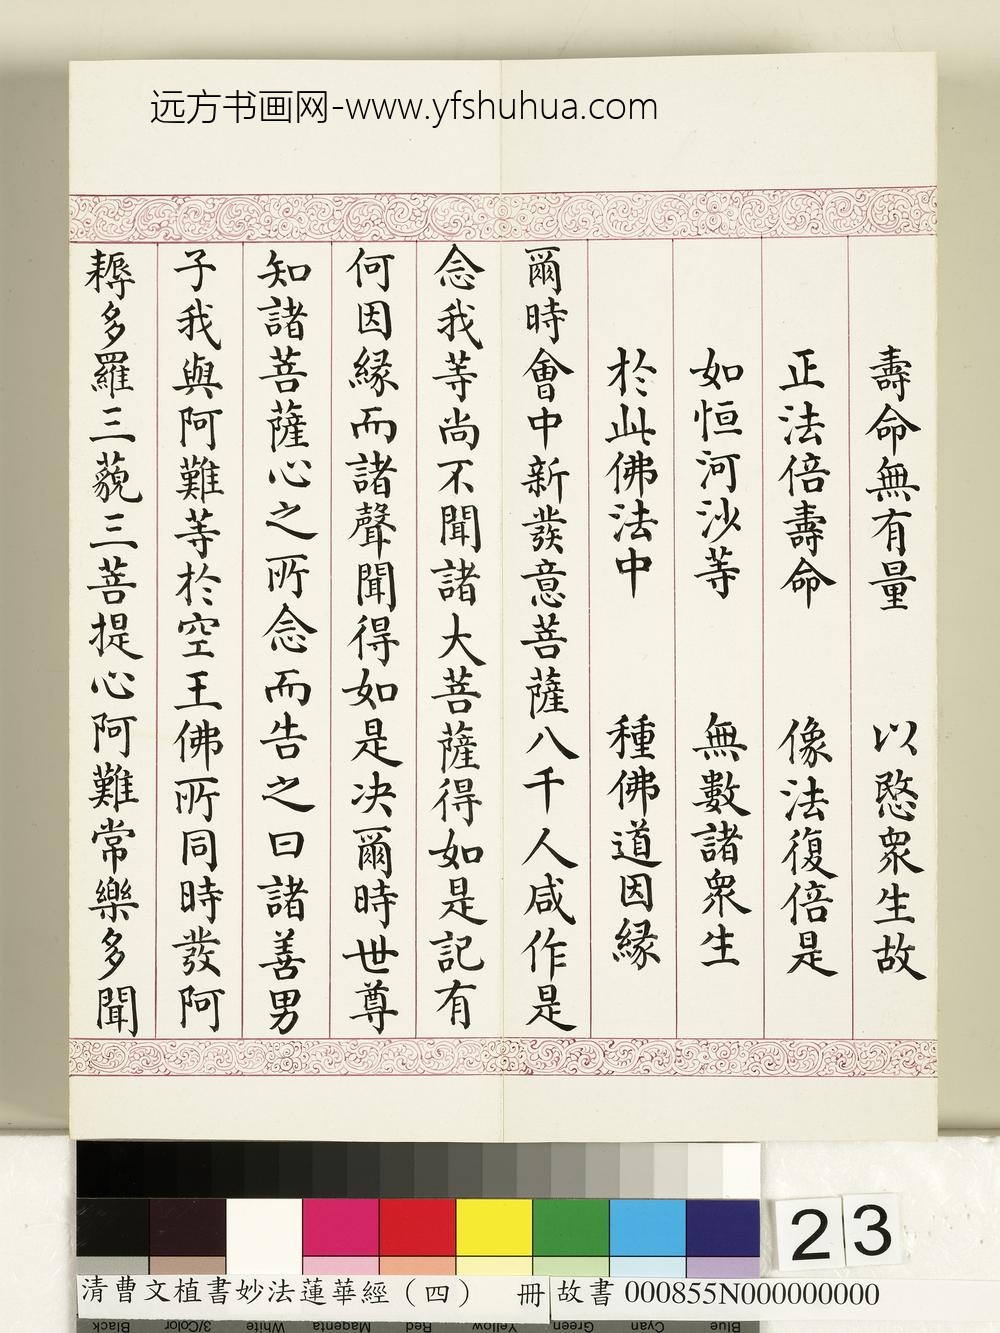 远方书画网-www.yfshuhua.com
壽命無有量 以愍衆生故
正法倍壽命 像法復倍是
如恒河沙等 無數諸衆生
於此佛法中 種佛道因縁
爾時會中新發意菩薩八千人咸作是
念我等尚不聞諸大菩薩得如是記有
何因縁而諸聲聞得如是决爾時世尊
知諸菩薩心之所念而告之曰諸善男
子我與阿難等於空王佛所同時發阿
耨多羅三藐三菩提心阿難常樂多聞
23
清曹文植書妙法蓮華經（四） 冊 故書 000855N000000000
Black 3/Color White Magenta Red Yellow Green Cyan Blue